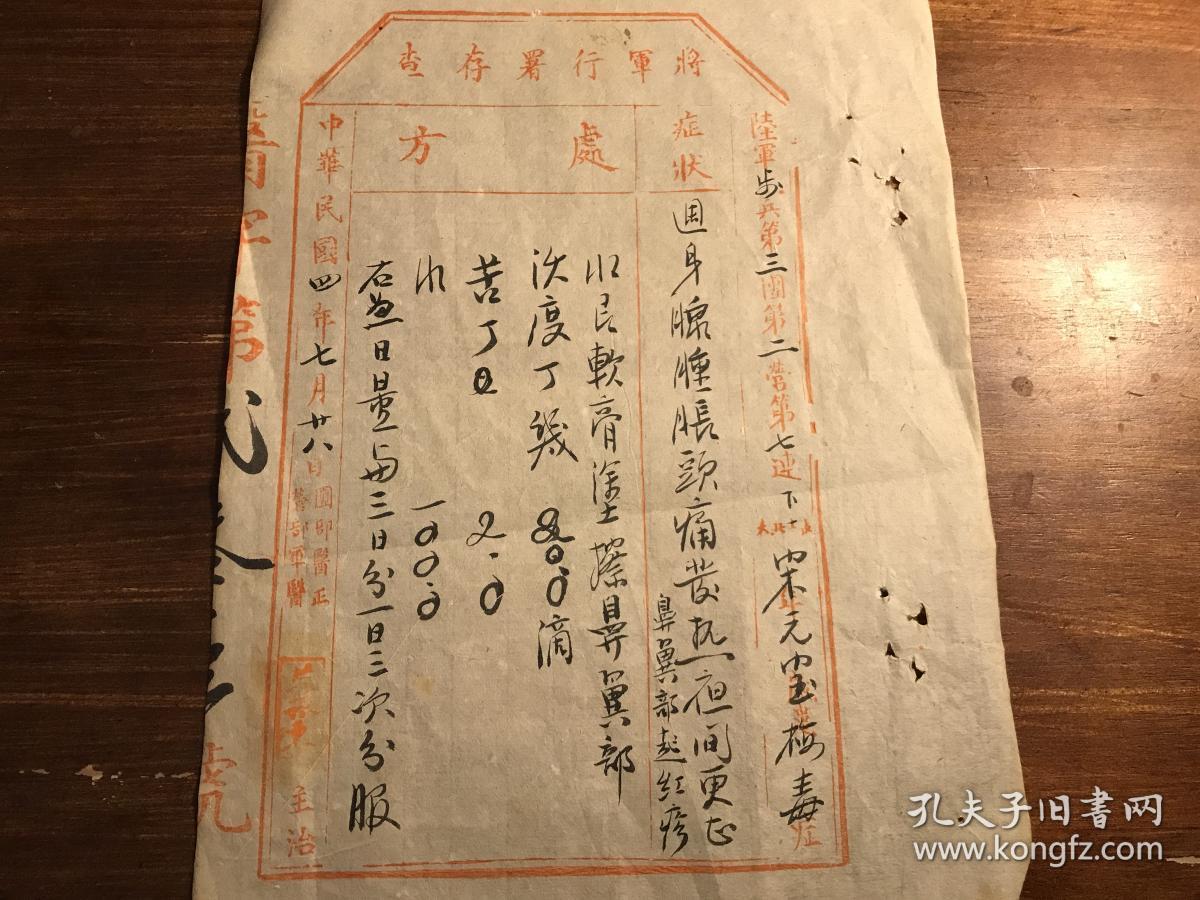 將軍行署存查
陸軍步兵第三團第二營第七連下士宋元寶梅毒症
症狀
週身腺腫脹頭痛發热夜间更甚
鼻翼部起紅疹
處方
水艮軟膏塗擦鼻翼部
沃度丁幾 滴
苦丁 2.0
水 100.0
右為日量每三日分一日三次分服
中華民國四年七月廿八日
團部醫正
營部軍醫
主治
第
號
孔夫子旧書网
www.kongfz.com